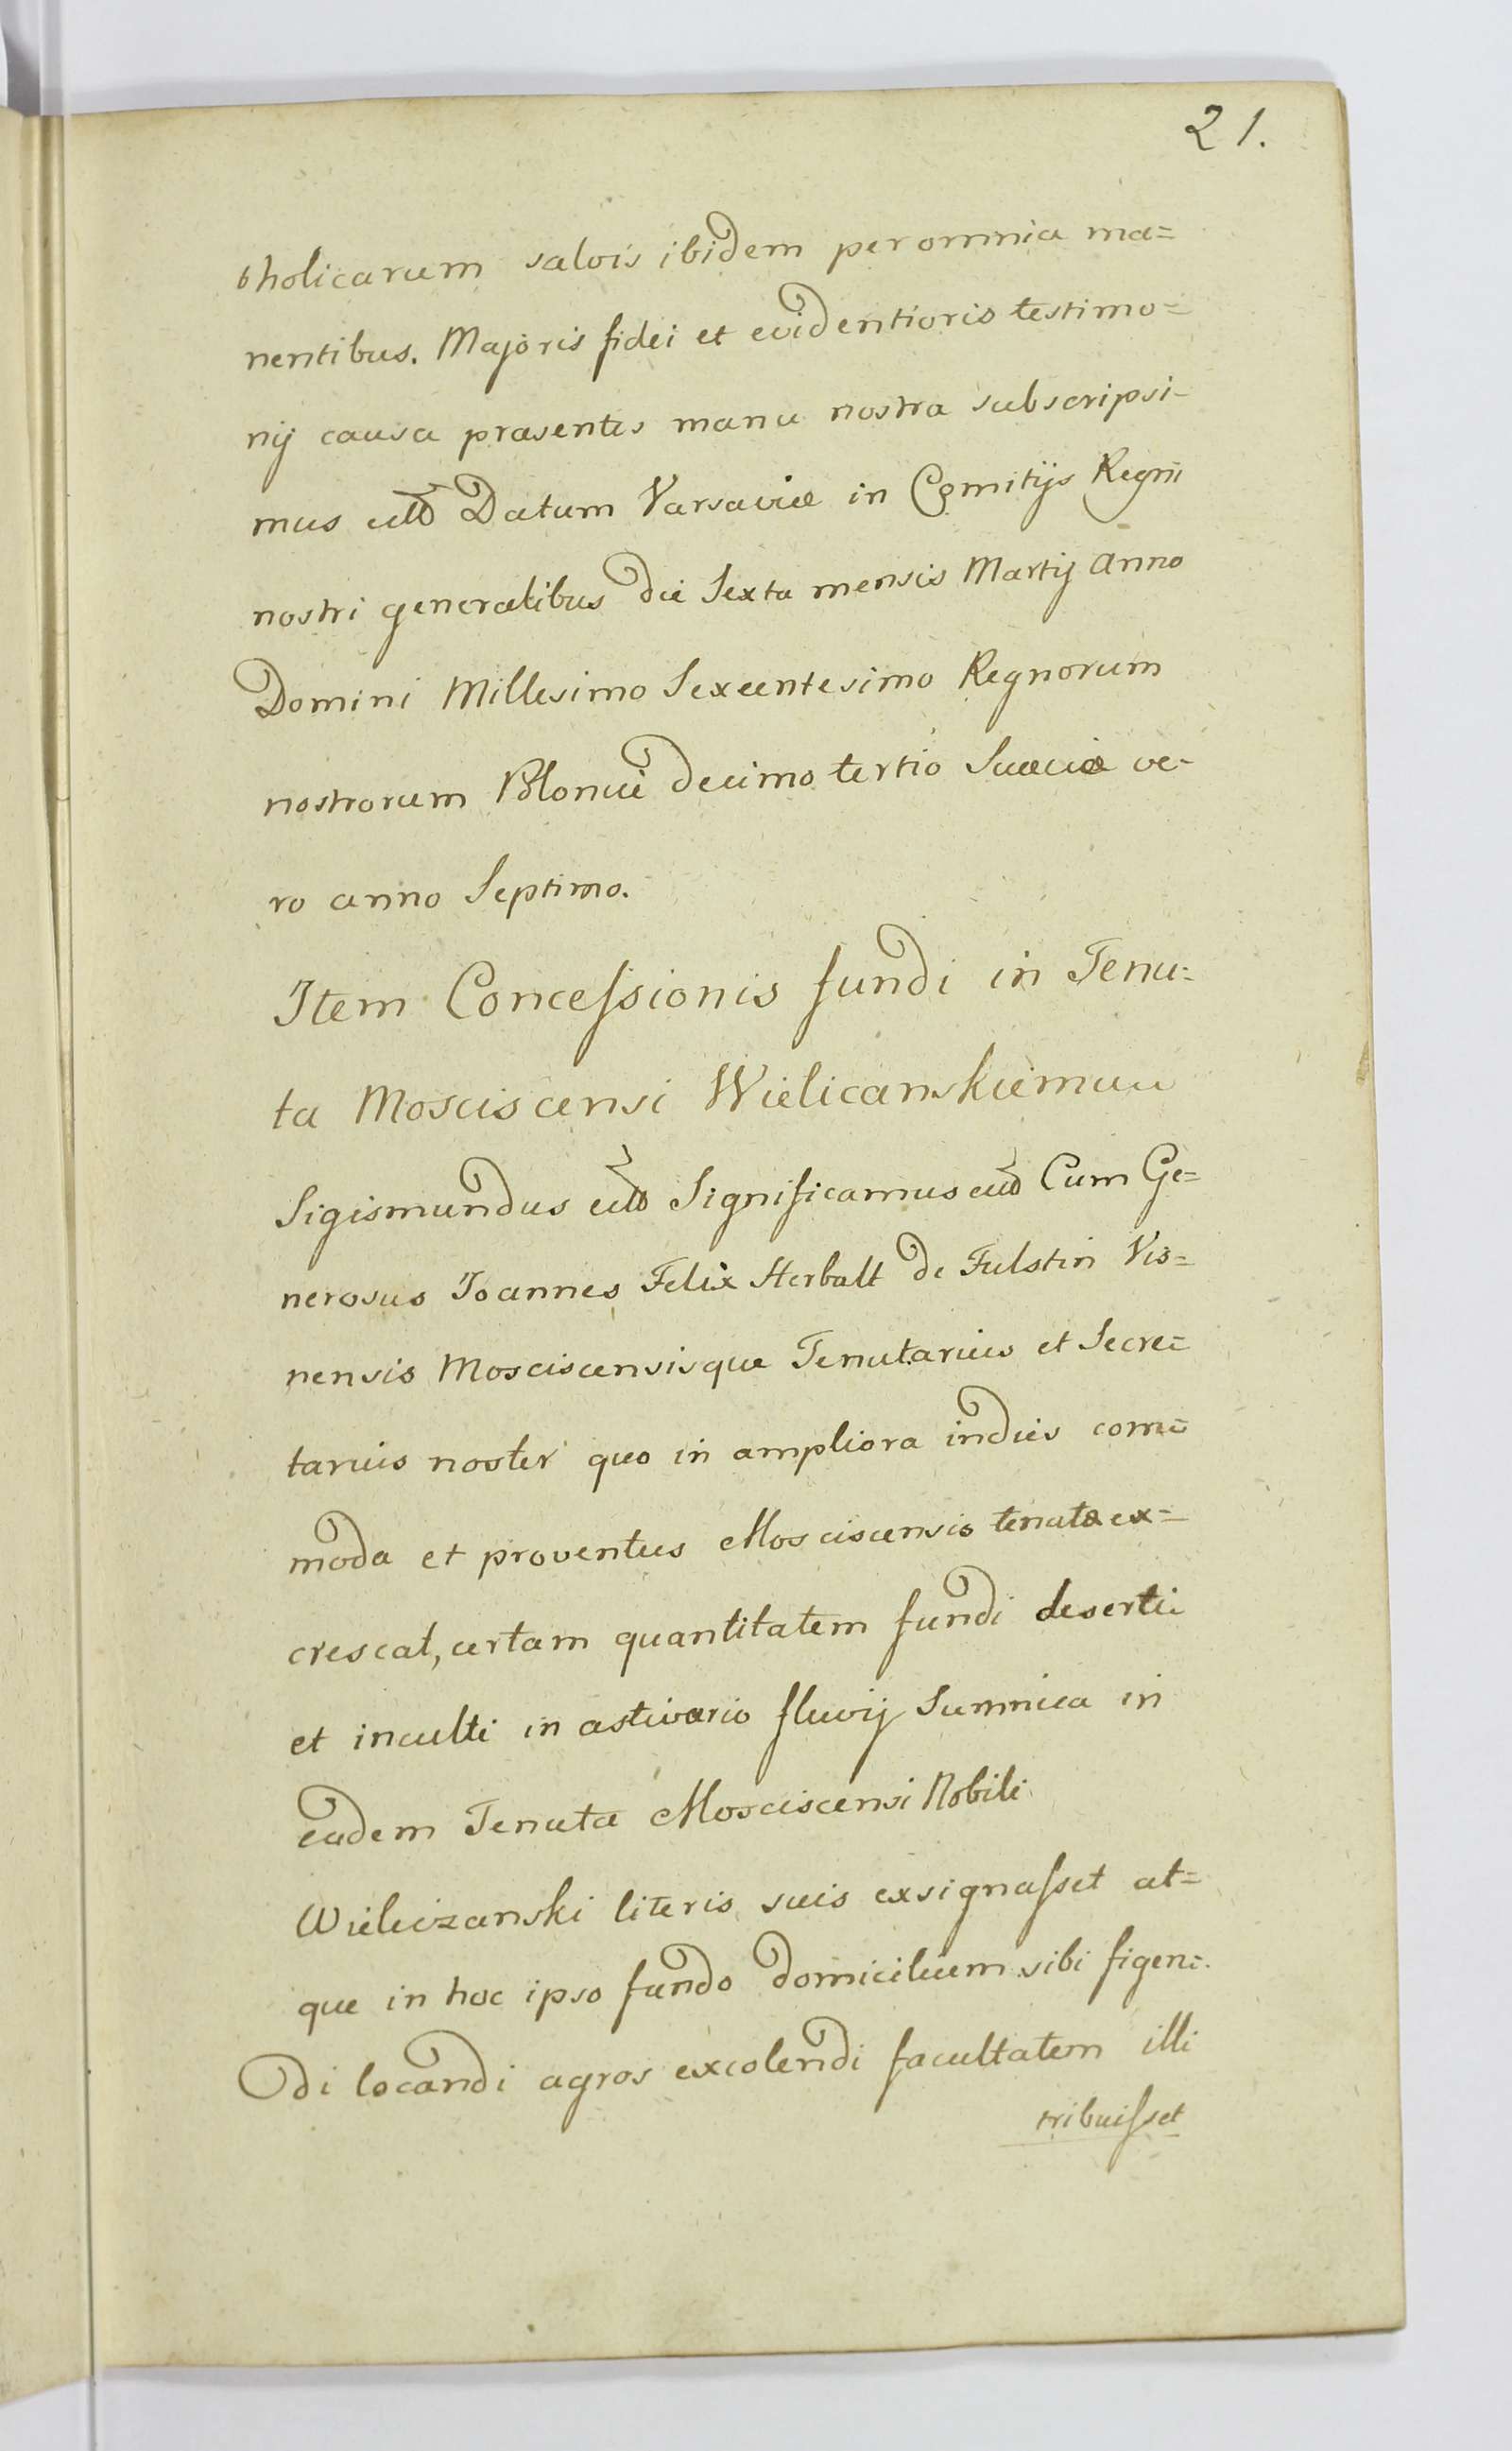 21.
tholicarum salvis ibidem per omnia ma=
nentibus. Majoris fidei et evidentioris testimo=
nij causa præsentes manu nostra subscripsi-
mus Datum Varsaviæ in Comitijs Regni
nostri generalibus die Sexta mensis Martij Anno
Domini Millesimo Sexcentesimo Regnorum
nostrorum Poloniæ decimo tertio Sueciæ ve-
ro anno Septimo.
Item Concessionis fundi in Tenu=
ta Mosciscensi Wielicanskiemuu
Sigismundus Significamus Cum Ge=
nerosus Joannes Felix Herbalt de Fulstin Vis=
nensis Mosciscensisque Tenutarius et Secre=
tarius noster quo in ampliora indies com=
moda et proventus Mosciscensis tenutæ ex=
crescat, certam quantitatem fundi deserti
et inculti in æstivario fluvij Sumnica in
eadem Tenuta Mosciscensi Nobili
Wieliczanski literis suis exsignasset at=
que in hoc ipso fundo domicilium sibi figen=
di locandi agros excolendi facultatem illi
tribuisset